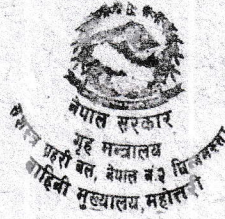 नेपाल सरकार
गृह मन्त्रालय
सशस्त्र प्रहरी बल, नेपाल नं.२
बाहिनी मुख्यालय, महोत्तरी